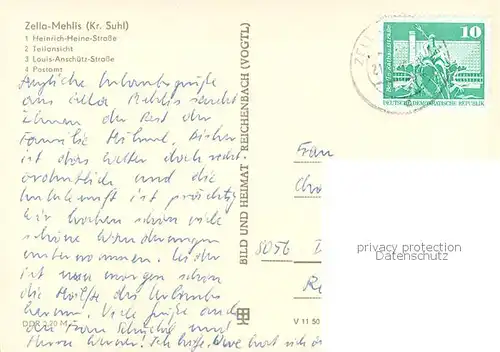 Zella-Mehlis (Kr. Suhl)
1 Heinrich-Heine-Straße
2 Teilansicht
3 Louis-Anschütz-Straße
4 Postamt
Urlaubsgrüße
aus Zella Mehlis sendet
Ihnen der Rest der
Familie Bisher
ist das Wetter doch recht
ordentlich und die
Unterkunft ist prächtig
Wir haben schon viele
schöne Wanderungen
unternommen. Leider
ist nun morgen schon
die Hälfte des Urlaubs
herum. Viele Grüße auch
an Frau und
Herrn Werner! Ich hoffe, Uwe hört sich
DDR 0,20 M
BILD UND HEIMAT REICHENBACH (VOGTL)
V 11 50
ZELL
10
DEUTSCHE DEMOKRATISCHE REPUBLIK
Frau
8056 D
privacy protection
Datenschutz